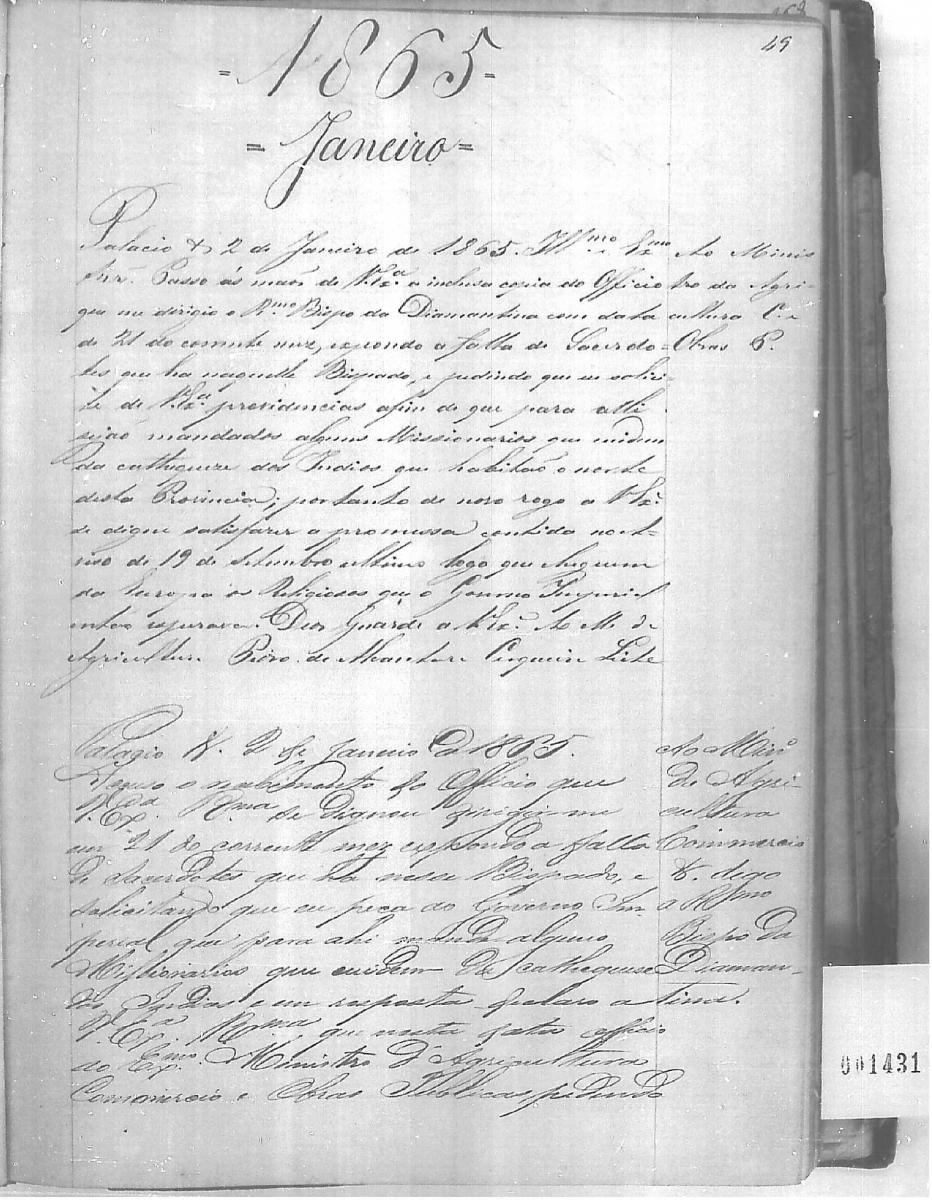 49
= 1865 =
= Janeiro =
Palacio & 2 de Janeiro de 1865. Illmo. Exmo.
Snr. Passo ás maõs de V.Exa. a inclusa copia do Officio
que me dirigio o Rmo Bispo da Diamantina com data
de 21 do corrente mez, expondo a falta de Sacerdo-
tes que ha naquelle Bispado, e pedindo que eu solici-
te de V.Exa. providencias afim de que para alli
sejaõ mandados alguns Missionarios que cuidem
da cathequeze dos Indios que habitaõ o norte
desta Provincia; portanto de novo rogo a V.Exa.
se digne satisfazer a promessa contida no A-
viso de 19 de Setembro ultimo logo que cheguem
da Europa os Religiosos que o Governo Imperial
entaõ esperava. Deos Guarde a V.Exa. Ao M. de
Agricultura Pedro de Alcantara Cerqueira Leite
Ao Minis
tro da Agri-
cultura C. e
Obras P.
Palacio &. 2 de Janeiro de 1865.
Tenho o recebimento do Officio que
V.Exa. Rma se dignou dirigir-me
em 21 do corrente mez expondo a falta
de Sacerdotes que ha nesse Bispado, e
solicitando que eu peça ao Governo Im
perial que para ahi mande alguns
Missionarios que cuidem da cathequese
dos Indios e em resposta declaro a
V.Exa. Rma que nesta data officio
ao Exmo. Ministro d'Agricultura
Commercio e Obras Publicas pedindo
Ao Miro
de Agri-
cultura
Commercio
&. digo
a Rmo
Bispo da
Diaman-
tina.
001431